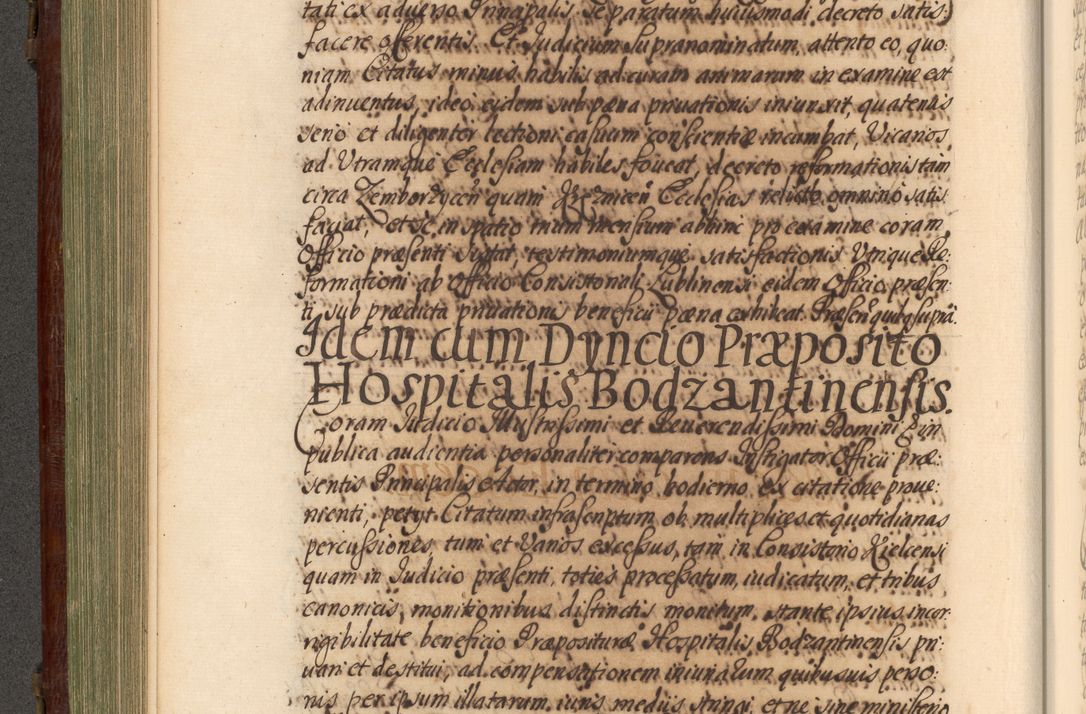 tati ex adverso Principalis se paratum huiusmodi decreto satis:
facere offerentis. Et Judicium supranominatum, attento eo, quo:
niam Citatus minus habilis ad curam animarum in examine est
adinuentus, ideo eidem sub pæna priuationis iniunxit, quatenus
serio et diligenter lectioni casuum conscientiæ incumbat, Vicarios
ad Utramque Ecclesiam habiles foueat, decreto reformationis tam
circa Zemborzycen̄ quam Ecclesias relicto omnino satis
faciat, et se in spatio trium mensium abhinc pro examine coram
Officio præsenti sistat, testimoniumque satisfactionis Utrique Re:
formationi ab Officio Consistoriali Lublinensi eidem Officio præsen:
ti sub prædicta priuationis beneficii pæna exhibeat. Præsen̄ quibg supra.
Idem cum Dyncio Præposito
Hospitalis Bodzantinensis.
Coram Judicio Illustrissimi et Reuerendissimi Domini in
publica audientia personaliter comparens Instigator Officii præ:
sentis Principalis Actor, in termino hodierno ex citatione proue:
nienti, petyt Citatum infrascriptum ob multiplices et quotidianas
percussiones, tum et Varios excessus, tam in Consistorio Kielcensi
quam in Judicio præsenti, toties processatum, iudicatum, et tribus
canonicis, monitionibus distinctis monitum, stante ipsius incor:
rigibilitate beneficio Præposituræ Hospitalis Bodzantinensis pri:
uari et destitui, ad compensationem iniuriarum quibusuis perso:
nis per ipsum illatarum, iuris mediis stringi, et ne sine ministerio